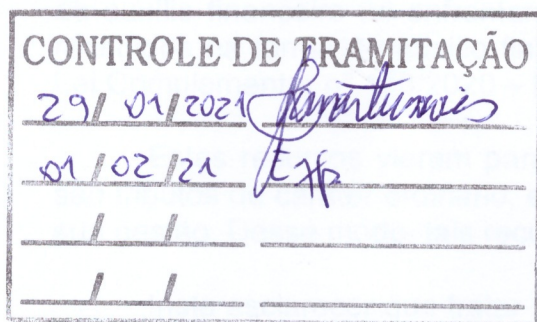 CONTROLE DE TRAMITAÇÃO
29/ 01/2021
01 / 02 /21 Exp
/ /
/ /